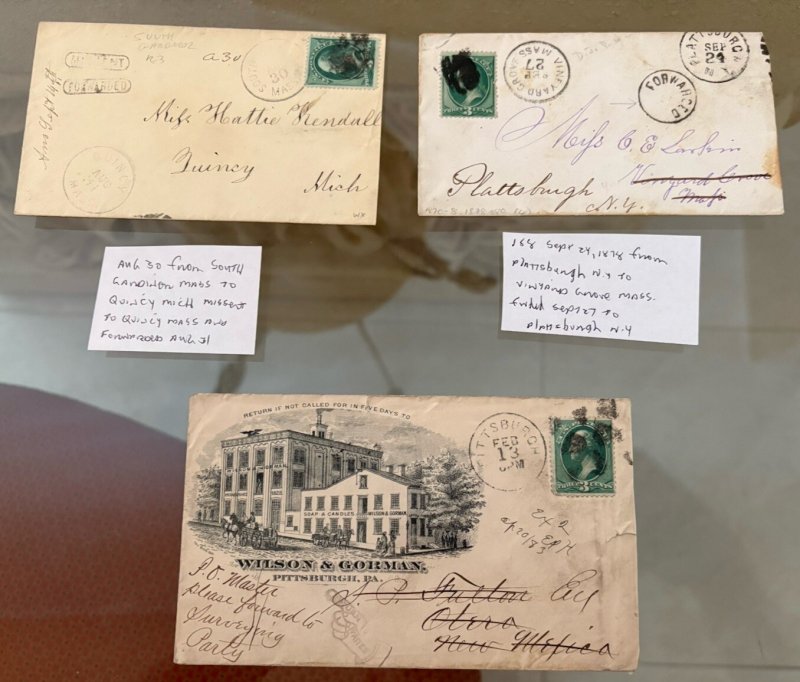 SOUTH
GARDNER
MISSENT
FORWARDED
A30
30
MASS
QUINCY
AUG
Miss Hattie Kendall
Quincy
Mich
WX
VINEYARD GROVE
MASS
27
PLATTSBURGH
SEP
24
FORWARDED
3
Miss C. E. Larkin
Vineyard Grove
Mass
Plattsburgh
N.Y.
AUG 30 from SOUTH
GARDNER MASS TO
QUINCY MICH MISSENT
TO QUINCY MASS AND
FORWARDED AUG 31
188 Sept 24, 1878 from
PLATTSburgh N.Y TO
VINEYARD GROVE MASS.
fwded SEPT 27 TO
PLATTSburgh N.Y
RETURN IF NOT CALLED FOR IN FIVE DAYS TO
SOAP & CANDLES WILSON & GORMAN
WILSON & GORMAN,
PITTSBURGH, PA.
PITTSBURGH
FEB
13
6PM
THREE 3 CENTS
Ex 2
P.O. Master
please forward to
Surveying
Party
A P. Fulton Esq
Otero
New Mexico